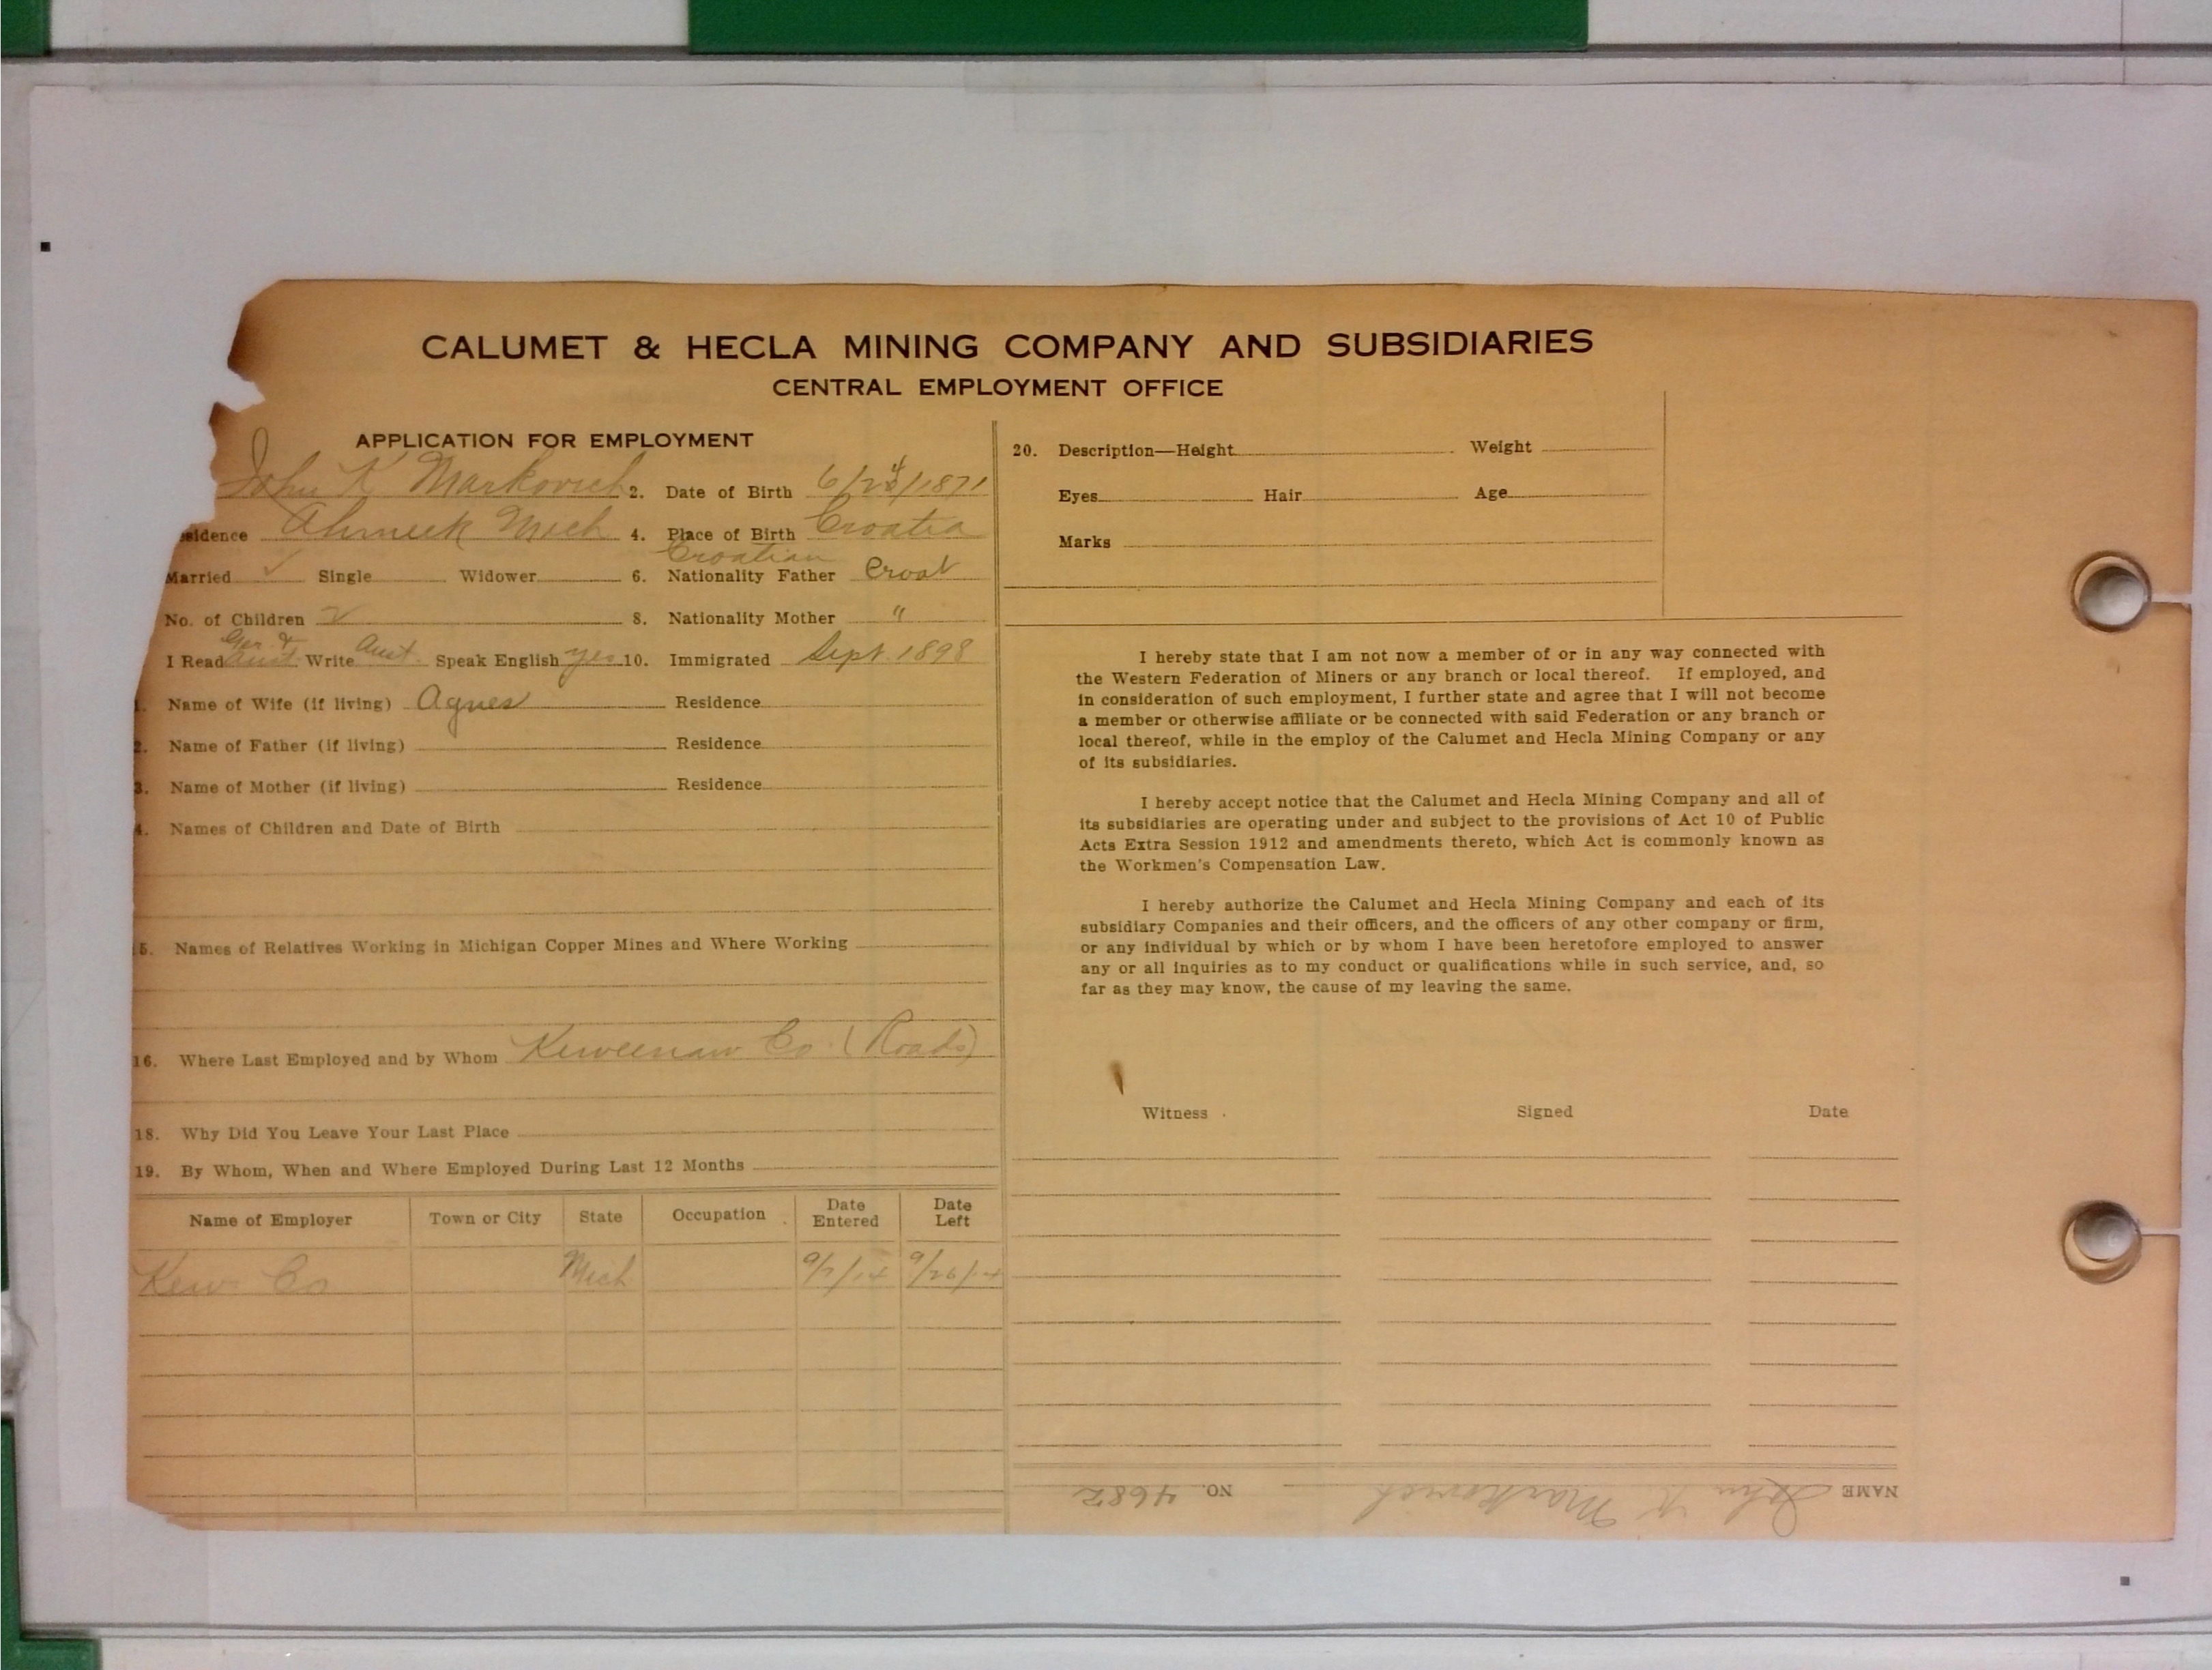 CALUMET & HECLA MINING COMPANY AND SUBSIDIARIES
CENTRAL EMPLOYMENT OFFICE
APPLICATION FOR EMPLOYMENT
John K Markovich 2. Date of Birth 6/24/1871
sidence Ahmeek Mich 4. Place of Birth Croatia
Croatian
Married ✓ Single Widower 6. Nationality Father Croat
No. of Children 2 8. Nationality Mother "
Ger. &
I Read Aust. Write Aust. Speak English yes 10. Immigrated Sept. 1898
1. Name of Wife (if living) Agnes Residence
2. Name of Father (if living) Residence
3. Name of Mother (if living) Residence
4. Names of Children and Date of Birth
15. Names of Relatives Working in Michigan Copper Mines and Where Working
16. Where Last Employed and by Whom Keweenaw Co. (Roads)
18. Why Did You Leave Your Last Place
19. By Whom, When and Where Employed During Last 12 Months
Name of Employer Town or City State Occupation Date Entered Date Left
Kew. Co Mich 9/7/14 9/26/14
20. Description—Height Weight
Eyes Hair Age
Marks
I hereby state that I am not now a member of or in any way connected with
the Western Federation of Miners or any branch or local thereof. If employed, and
in consideration of such employment, I further state and agree that I will not become
a member or otherwise affiliate or be connected with said Federation or any branch or
local thereof, while in the employ of the Calumet and Hecla Mining Company or any
of its subsidiaries.
I hereby accept notice that the Calumet and Hecla Mining Company and all of
its subsidiaries are operating under and subject to the provisions of Act 10 of Public
Acts Extra Session 1912 and amendments thereto, which Act is commonly known as
the Workmen's Compensation Law.
I hereby authorize the Calumet and Hecla Mining Company and each of its
subsidiary Companies and their officers, and the officers of any other company or firm,
or any individual by which or by whom I have been heretofore employed to answer
any or all inquiries as to my conduct or qualifications while in such service, and, so
far as they may know, the cause of my leaving the same.
Witness Signed Date
NAME John K Markovich NO. 4682